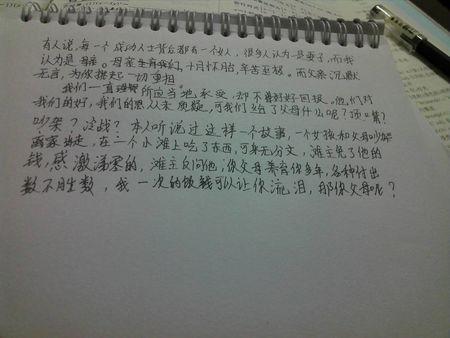 有人说,每一个成功人士背后都有一个女人,很多人认为是妻子,而我
认为是母亲。母亲生育我们,十月怀胎,辛苦至极。而父亲沉默
无言,为你撑起一切重担
我们一直理所应当地承受,却不曾好好回报。他们对
我们的好,我们的恩从未质疑,可我们给了父母什么呢?顶嘴?
吵架?冷战?本人听说过这样一个故事,一个女孩和父母吵架
离家出走,在一个小滩上吃了东西,可身无分文,滩主免了他的
钱,感激涕零的,滩主反问他,你父母养育你多年,各种付出
数不胜数,我一次的饭钱可以让你流泪,那你父母呢?